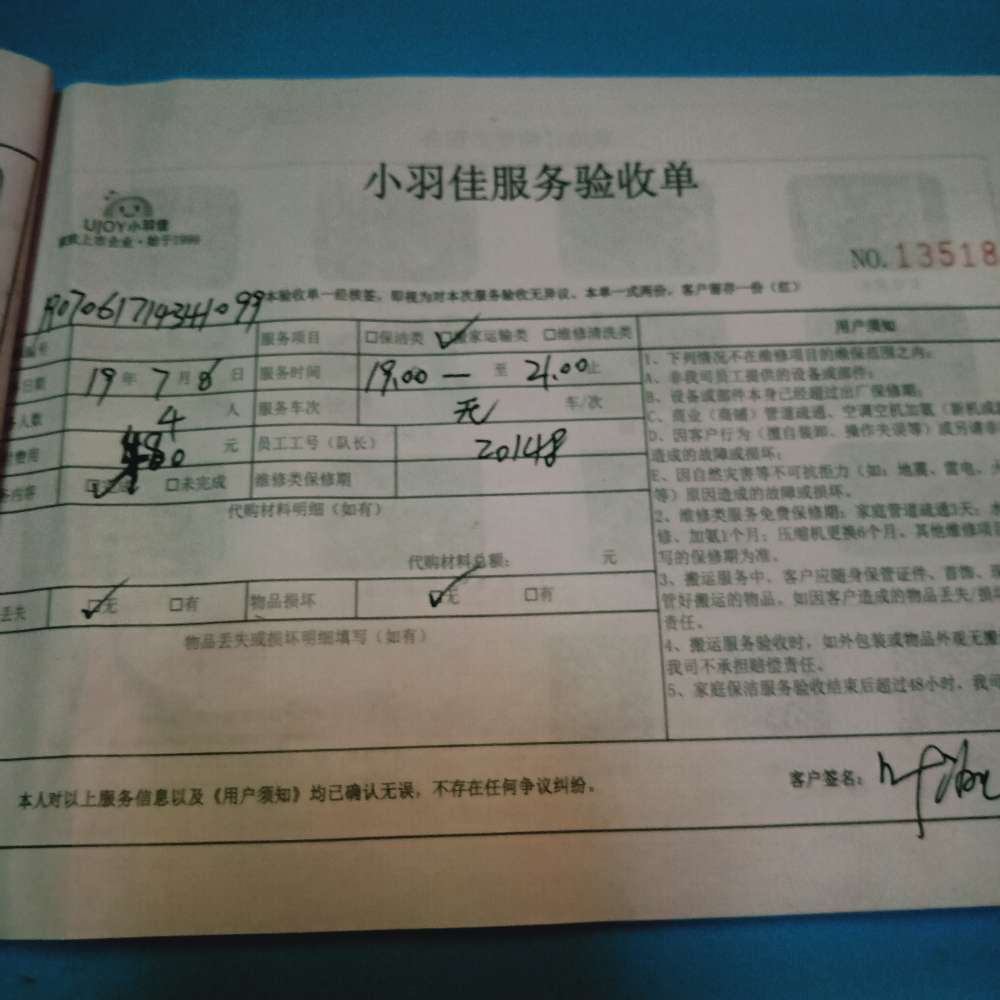 小羽佳服务验收单
UJOY小羽佳
家政上市企业·始于1999
NO.13518
R07061714341099
本验收单一经核签，即视为对本次服务验收无异议。本单一式两份，客户留存一份（红）
编号 服务项目 □保洁类 ☑搬家运输类 □维修清洗类
日期 19年7月8日 服务时间 19.00 — 至 21.00止
人数 4人 服务车次 无 车/次
费用 480元 员工工号（队长） 20148
务内容 ☑完成 □未完成 维修类保修期
代购材料明细（如有）
代购材料总额： 元
丢失 ☑无 □有 物品损坏 ☑无 □有
物品丢失或损坏明细填写（如有）
用户须知
1、下列情况不在维修项目的维保范围之内：
A、非我司员工提供的设备或部件；
B、设备或部件本身已经超过出厂保修期；
C、商业（商铺）管道疏通、空调空机加氨（新机或
D、因客户行为（擅自装卸、操作失误等）或另请非
造成的故障或损坏；
E、因自然灾害等不可抗拒力（如：地震、雷电、
等）原因造成的故障或损坏。
2、维修类服务免费保修期：家庭管道疏通3天；
修、加氨1个月；压缩机更换6个月。其他维修项
写的保修期为准。
3、搬运服务中，客户应随身保管证件、首饰、
管好搬运的物品。如因客户造成的物品丢失/损
责任。
4、搬运服务验收时，如外包装或物品外观无
我司不承担赔偿责任。
5、家庭保洁服务验收结束后超过48小时，我司
本人对以上服务信息以及《用户须知》均已确认无误，不存在任何争议纠纷。
客户签名：